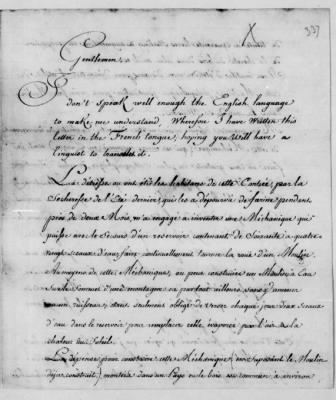 337
Gentlemen
I don't speak well enough the English language
to make me understand, Wherefore I have Written this
Letter in the French tongue, hoping you Will have a
linguist to translate it.
La détresse ou ont été les habitans de cette Contrée, par la
Secheresse de l'Eté dernier, qui les a dépourvus de farine pendant
près de deux Mois, m'a engagé a inventer une Méchanique qui
puisse avec le Secours d'un reservoir contenant de Soixante à quatre
vingts Sceaux d'eau, faire continuellement tourner la roue d'un Moulin.
Au moyen de cette Méchanique, on peut construire un Moulin à Eau
Sur le Sommet d'une montagne ou partout ailleurs, sans y amener
aucun ruisseau, étant seulement obligé de verser chaque jour deux Sceaux
d'eau dans le reservoir pour remplacer celle évaporée par l'air et la
chaleur du Soleil.
La dépense pour construire cette Méchanique, (en supposant le Moulin
déja construit) montera dans un Pays ou le bois est commun à environ